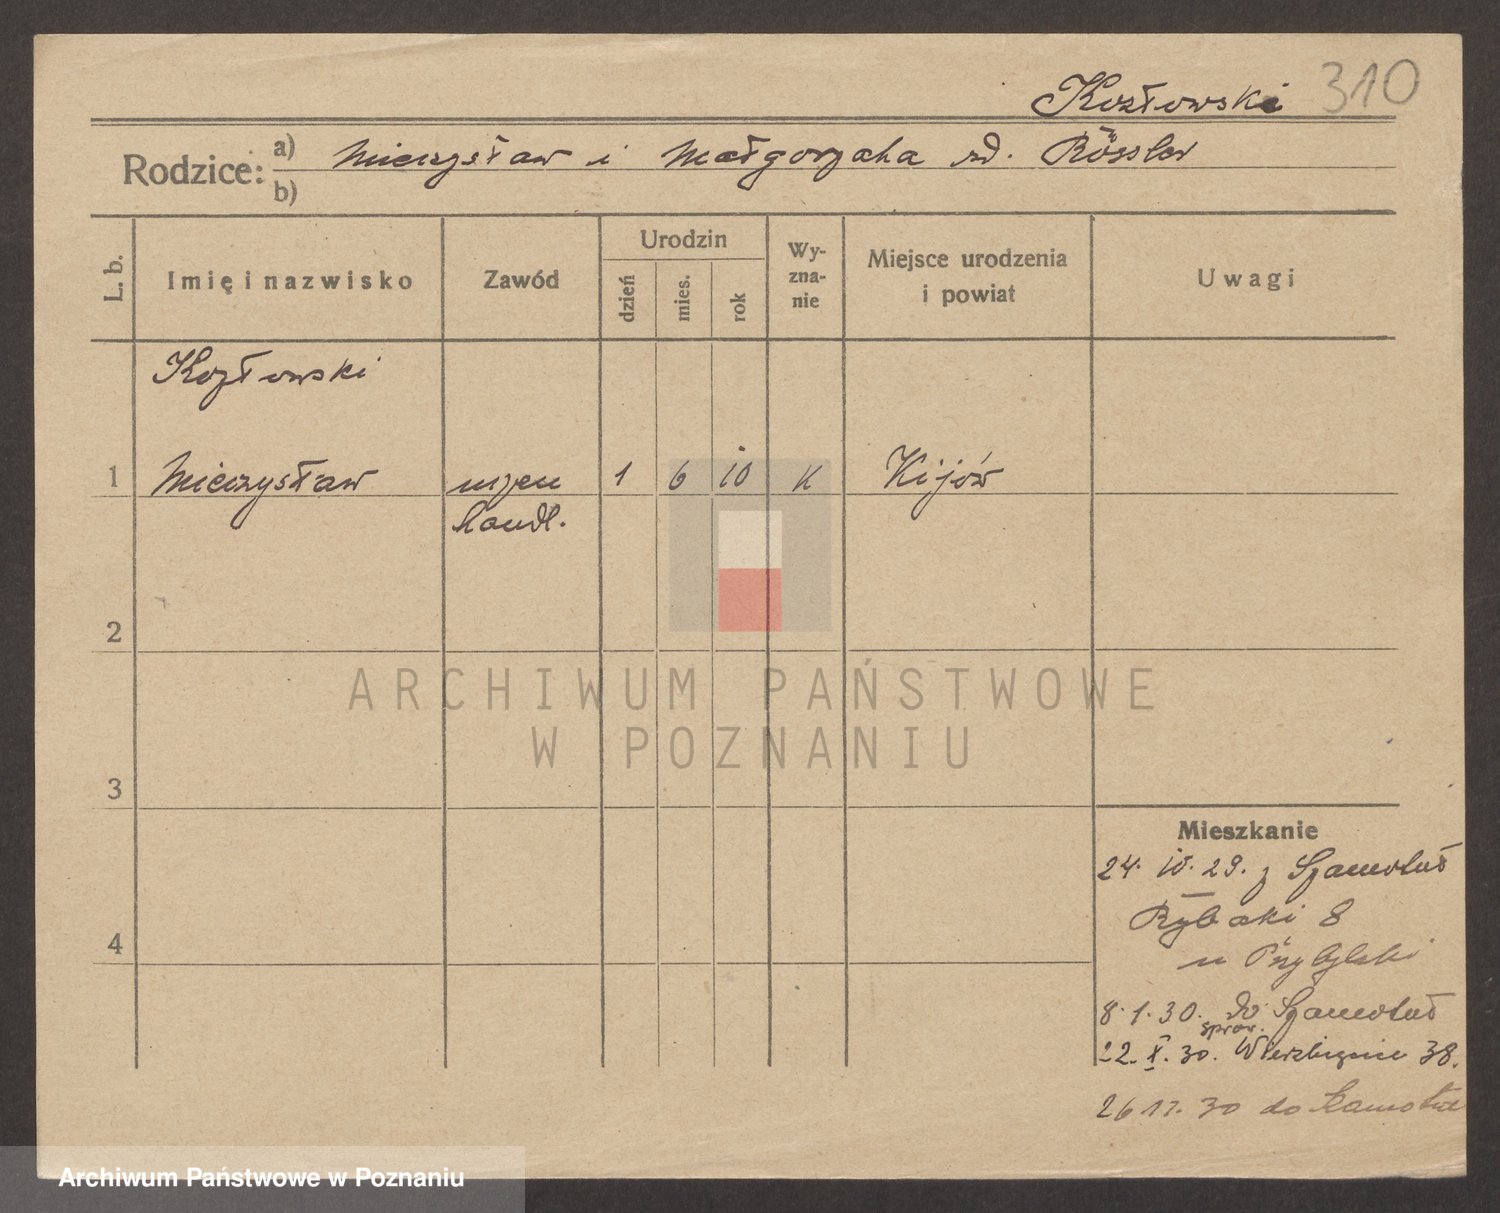 Kozłowski 310
Rodzice: a) Mieczysław i Małgorzata rd. Rössler
b)
L. b.
Imię i nazwisko
Zawód
Urodzin
dzień
mies.
rok
Wy-
zna-
nie
Miejsce urodzenia
i powiat
Uwagi
Kozłowski
1 Mieczysław uczeń 1 6 10 K Kijów
handl.
2
3
4
Mieszkanie
24. 10. 29. z Szamotuł
Rybaki 8
u Przybylski
8. 1. 30. do Szamotuł
sprow.
22. X. 30. Wierzbięcice 38.
26 11. 30 do Szamotuł
ARCHIWUM PAŃSTWOWE
W POZNANIU
Archiwum Państwowe w Poznaniu